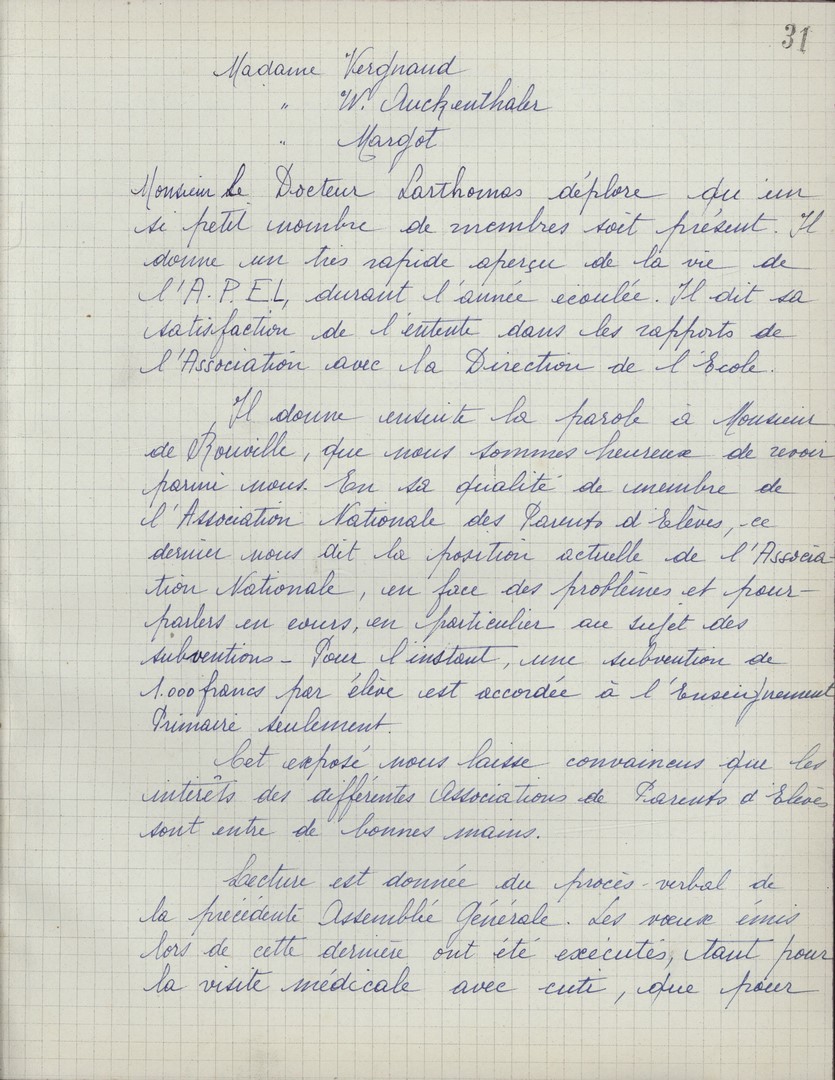 31
Madame Vergnaud
" W. Auckenthaler
" Margot
Monsieur le Docteur Larthomas déplore qu'un
si petit nombre de membres soit présent. Il
donne un très rapide aperçu de la vie de
l'A.P.E.L, durant l'année écoulée. Il dit sa
satisfaction de l'entente dans les rapports de
l'Association avec la Direction de l'Ecole.
Il donne ensuite la parole à Monsieur
de Rouville, que nous sommes heureux de revoir
parmi nous. En sa qualité de membre de
l'Association Nationale des Parents d'Elèves, ce
dernier nous dit la position actuelle de l'Associa-
tion Nationale, en face des problèmes et pour-
parlers en cours, en particulier au sujet des
subventions - Pour l'instant, une subvention de
1.000 francs par élève est accordée à l'Enseignement
Primaire seulement.
Cet exposé nous laisse convaincus que les
intérêts des différentes Associations de Parents d'Elèves
sont entre de bonnes mains.
Lecture est donnée du procès-verbal de
la précédente Assemblée Générale. Les vœux émis
lors de cette dernière ont été exécutés, tant pour
la visite médicale avec cuti, que pour